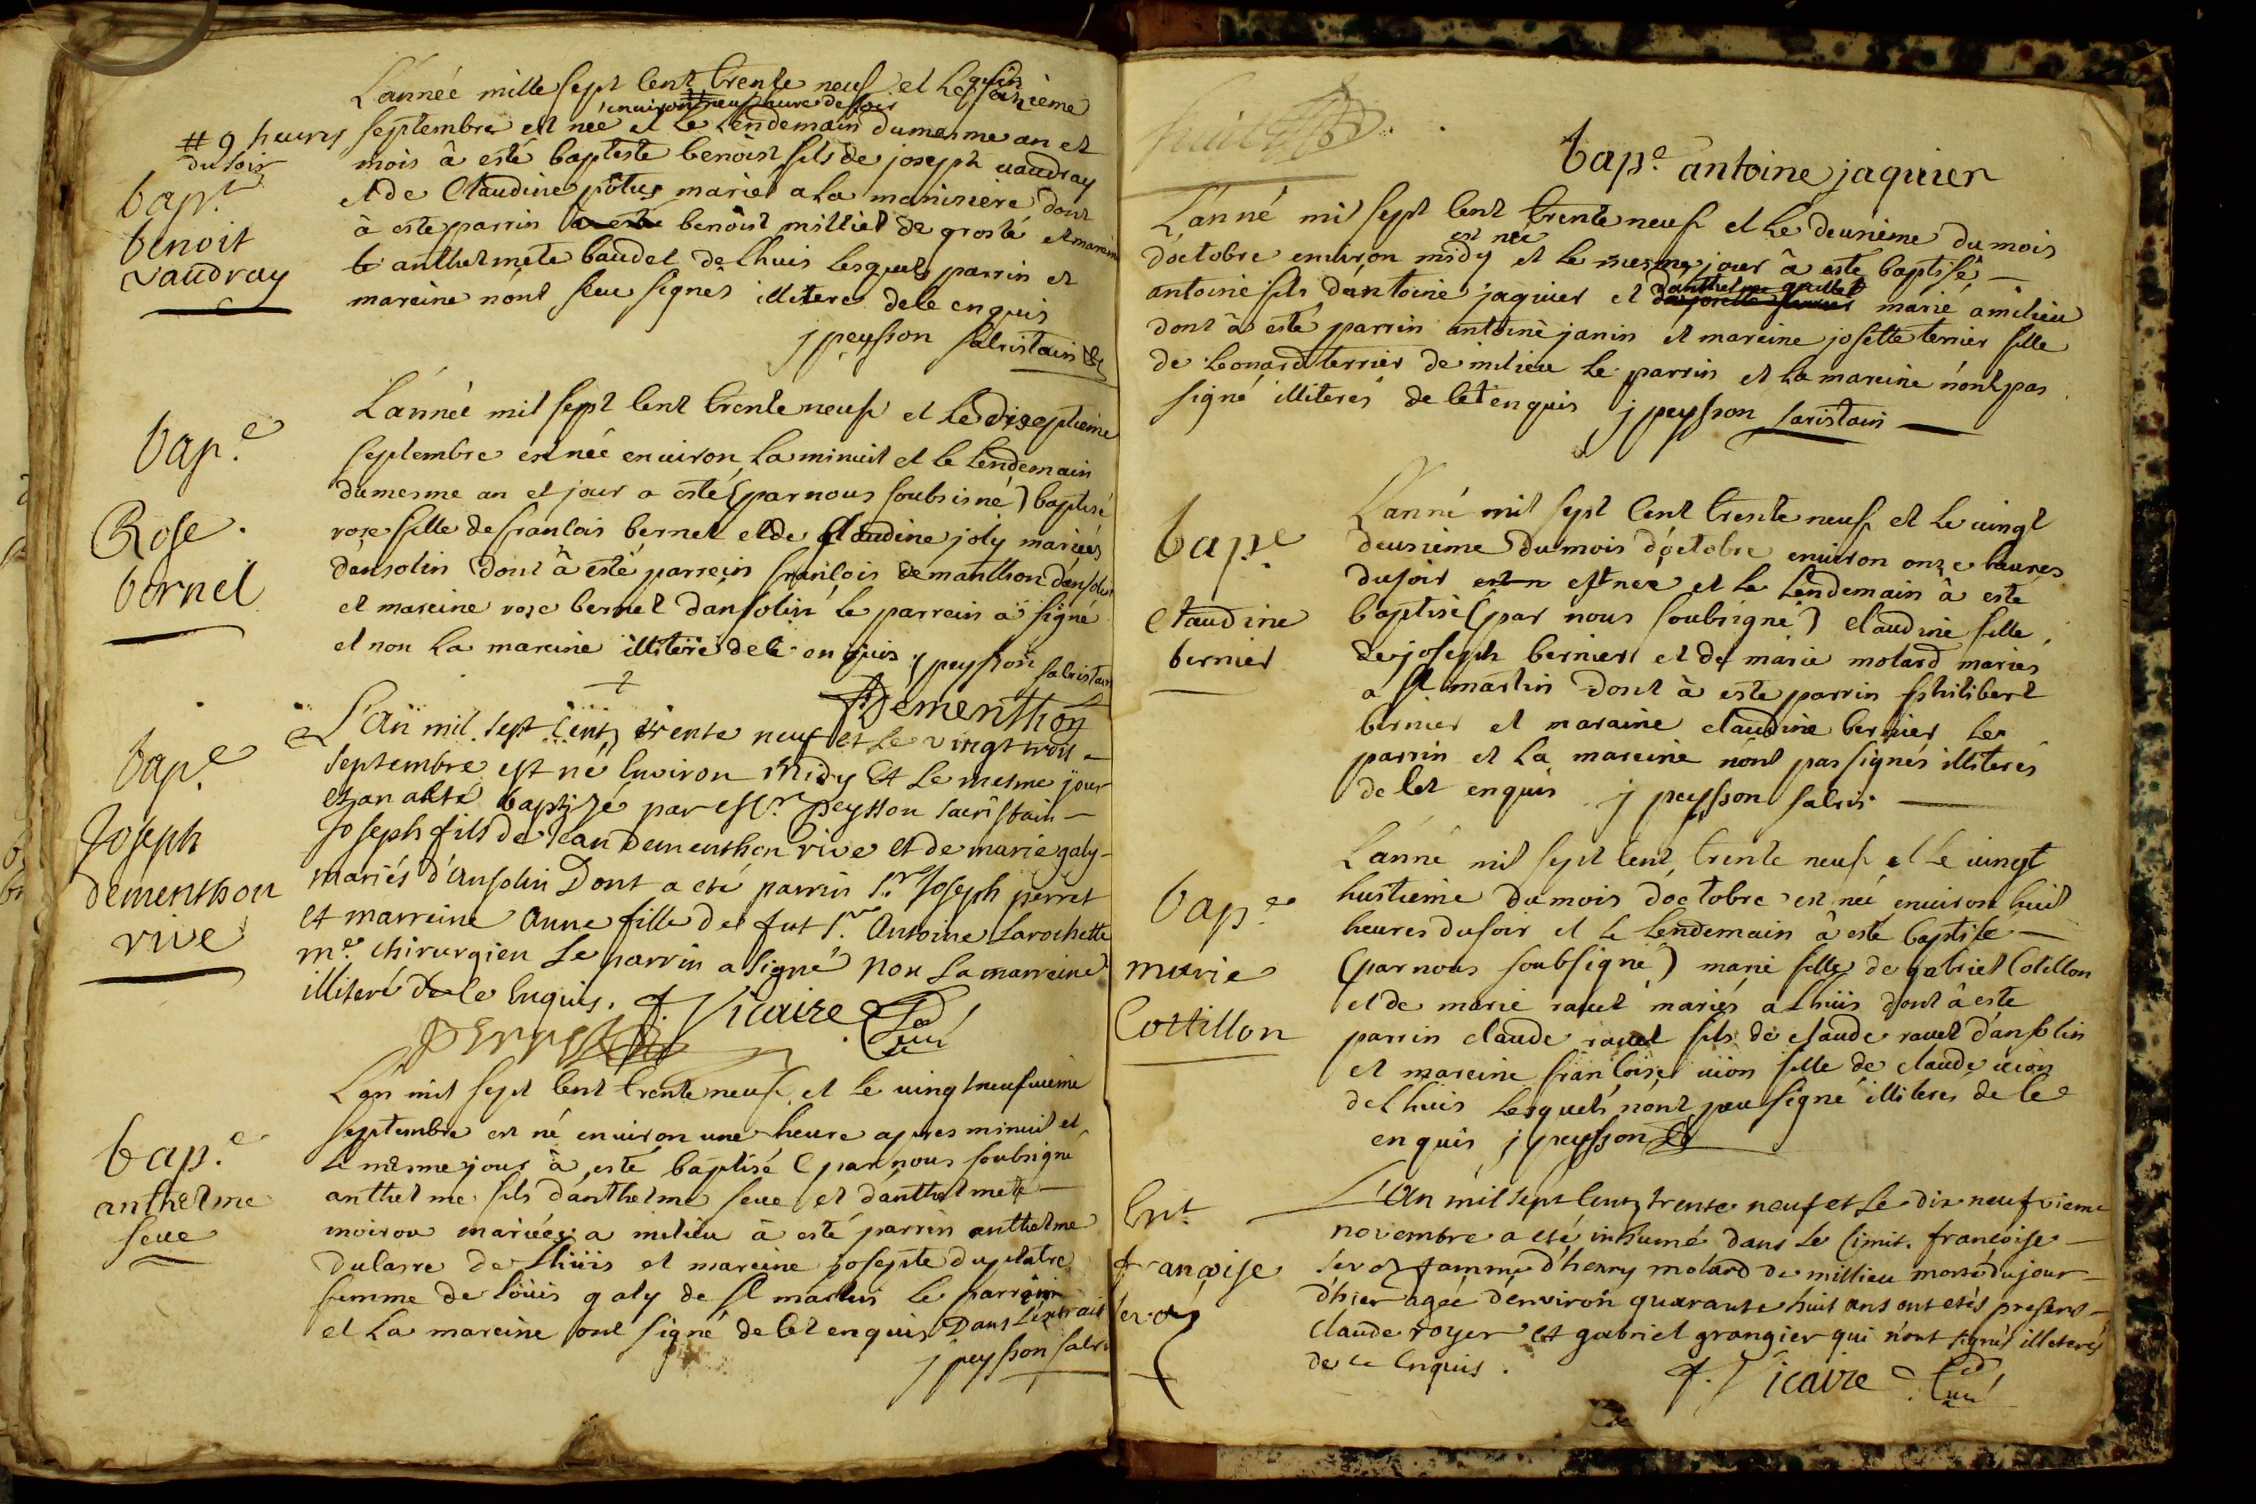 L'année mille sept cent trente neuf et le quinzieme
environ neuf heure de soir
septembre est née et le lendemain du mesme an et
# 9 heures du soir
mois à esté baptisté benoist fils de joseph vaudray
et de Claudine mariés a la
dont
à esté parrin benoist milliet de grosté et mareine
anthelmete baudet de lhuis lesquels parrin et
mareine n'ont sceu signés illiteres de ce enquis
j peysson sacristain
bap.t
benoit
vaudray
L'année mil sept cent trente neuf et le diseptieme
septembre est née environ la minuit et le lendemain
du mesme an et jour a esté (par nous soubsiné) baptisé
rose fille de francois bernet et de Claudine joly mariés
d'ansolin dont à esté parrein francois demanthon d'ansolin
et mareine rose bernet d'ansolin le parrein a signé
et non la mareine illitere de ce enquis j peysson sacristain
Dementhon
bap.e
Rose
bernet
L'an mil sept cent trente neuf et le vingt trois
septembre est né environ midy et le mesme jour
et an a esté baptizé par Mr. peysson sacristain
Joseph fils de Jean Dementhon rive et de marie galy
mariés d'Ansolin Dont a eté parrin Sr. Joseph perret
et marreine Anne fille de fut Sr. Antoine Larochette
me. chirurgien le parrin a signé non la marreine
illiteré de ce enquis. f. Vicaire curé
perret
bap.e
Joseph
dementhon
rive
L'an mil sept cent trente neuf et le vingt neufvieme
septembre est né environ une heure apres minuit et
le mesme jour à esté baptisé (par nous soubsigné
anthelme fils d'anthelme seve et d'anthelmete
moirou mariées a milieu à esté parrin anthelme
dularre de Lhuis et mareine josepte duplatre
femme de louis galy de st martin le parrein
et la mareine ont signé de cet enquis Dans l'extrait
j peysson sacris
bap.e
anthelme
seve
huit
bap.e antoine jaquier
L'anné mil sept cent trente neuf et le deusieme du mois
est née
d'octobre environ midy et le mesme jour à esté baptisé
antoine fils d'antoine jaquier et d'anthelme guillet marié a milieu
dont à esté parrin antoine janin et mareine josette terrier fille
de Leonard terrier de milieu le parrin et la mareine n'ont pas
signé illiterés de cet enquis j peysson saristain
L'anné mil sept cent trente neuf et le vingt
deusieme du mois d'octobre environ onze heures
du soir est n est née et le lendemain à esté
baptisé (par nous soubsigné) claudine fille
de joseph bernier et de marie molard mariés
a st martin dont à esté parrin philibert
bernier et maraine claudine bernier les
parrin et la mareine n'ont pas signés illiterés
de cet enquis j peysson sacris
bap.e
claudine
bernier
L'anné mil sept cent trente neuf et le vingt
huitieme du mois d'octobre est né environ huit
heures du soir et le lendemain à esté baptisé
(par nous soubsigné) marie fille de gabriel Cotillon
et de marie ravet mariés a Lhuis dont à esté
parrin claude ravet fils de claude ravet d'ansolin
et mareine francoise uion fille de claude uion
de Lhuis lesquels n'ont peu signé illiterés de ce
enquis j peysson
bap.e
marie
Cottillon
L'an mil sept cent trente neuf et le dix neufvieme
novembre a eté inhumé dans le cimit. francoise
seroz famme d'henry molard de millieu morte du jour
d'hier agée d'environ quarante huit ans ont etés presens
claude royer et gabriel grangier qui n'ont signés illeterés
de ce enquis. f. Vicaire curé
Ent
francoise
seroz